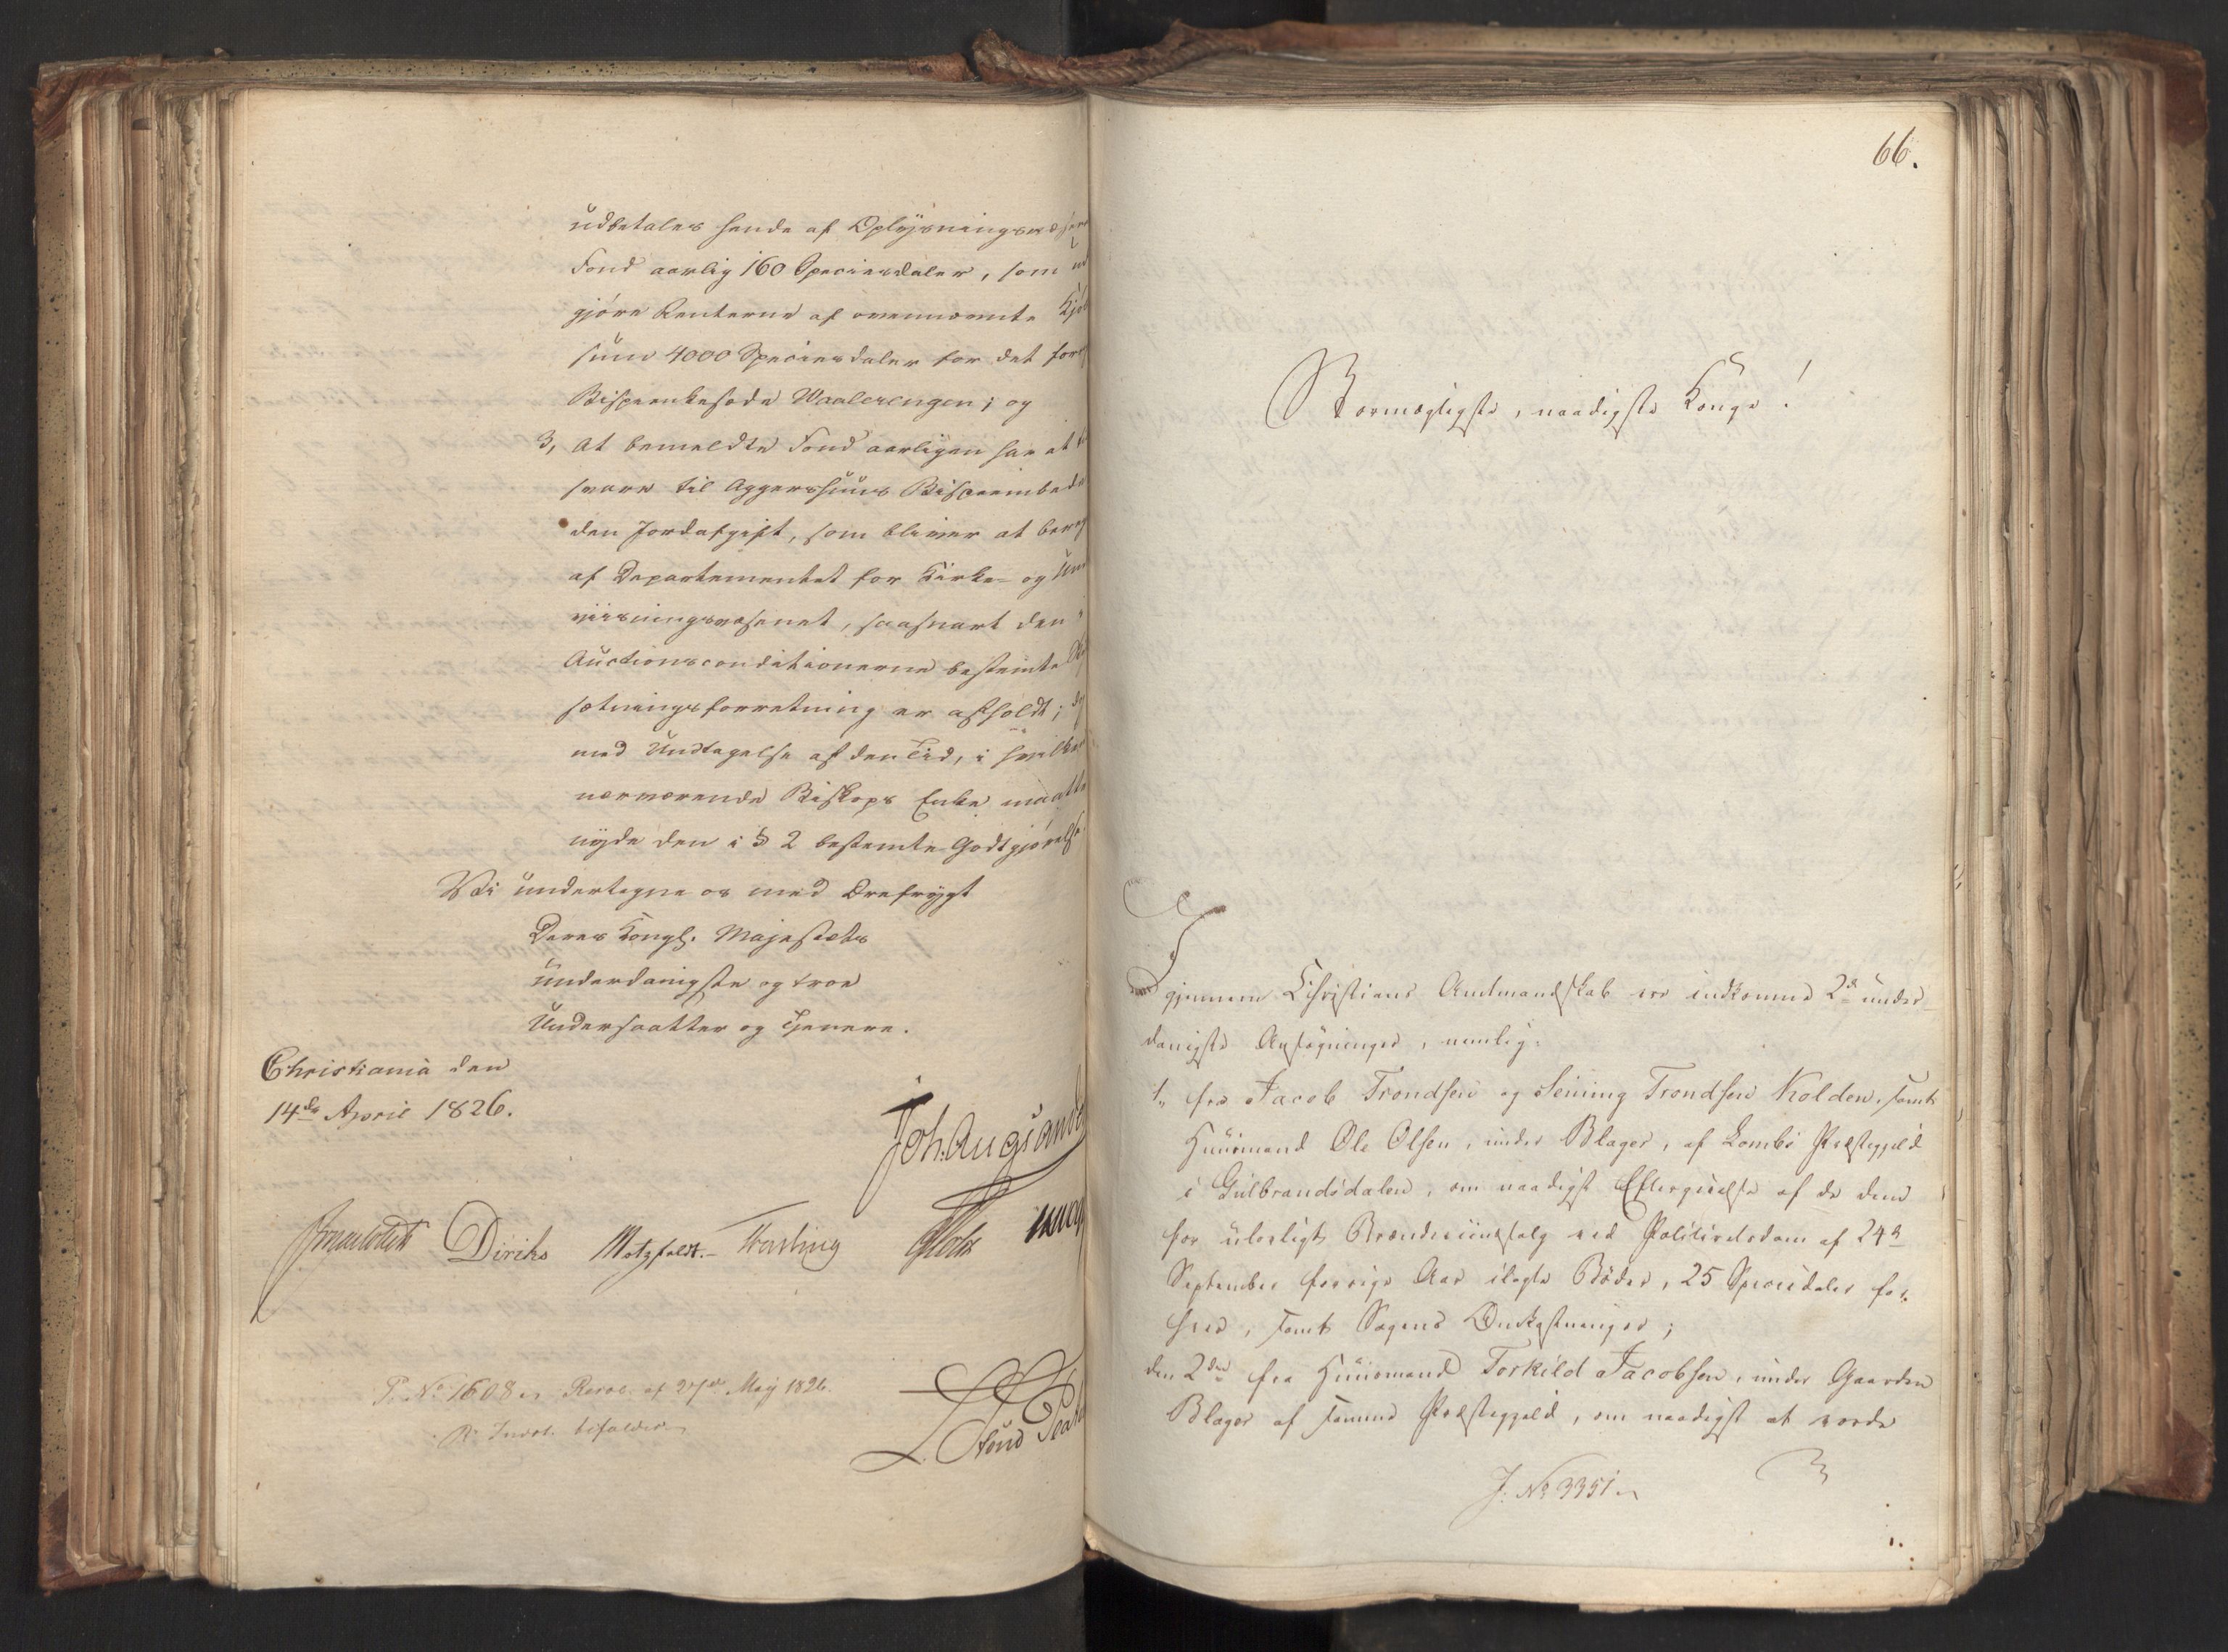 udbetales hende af Oplysningsvæsen
Fond aarlig 160 Speciesdaler, som ud
gjøre Renterne af ovennævnte Kjøb
sum 4000 Speciesdaler for det forr
Bispeenkesæde Waalerengen; og
3, At bemeldte Fond aarligen har at
svare til Aggershuus Bispeembede
den Jordafgift, som bliver at bereg
af Departementet for Kirke- og Un
viisningsvæsenet, saasnart den i
Auctionsconditionerne bestemte
sætningsforretning er afholdt; dog
med Undtagelse af den Tid, i hvilken
nærværende Biskops Enke maatte
nyde den i § 2 bestemte Godtgjørelse
Vi undertegne os med Ærefrygt
Deres Kongl. Majestæts
underdanigste og troe
Undersaatter og Tjenere.
Christiania den
14de April 1826.
Joh. Aug: Sand
Diriks Motzfeldt.
P. No 1608 Resol. af 27de May 1826.
R: Indst. bifaldes
66.
Stormægtigste, naadigste Konge!
Igjennem Christians Amtmandskab ere indkomne 2de under-
danigste Ansøgninger, nemlig:
1, fra Jacob Trondsen og Trondsen Kolden, samt
Huusmand Ole Olsen, under Blager, af Lombs Præstegjeld
i Gulbrandsdalen, om naadigst Eftergivelse af de dem
for ulovligt Brændeviinssalg ved Politieretsdom af 24de
September forrige Aar ilagte Bøder, 25 Speciedaler for
hver, samt Sagens Omkostninger;
den 2den fra Huusmand Torkild Jacobsen, under Gaarden
Blager af samme Præstegjeld, om naadigst at vorde
J. No 3351